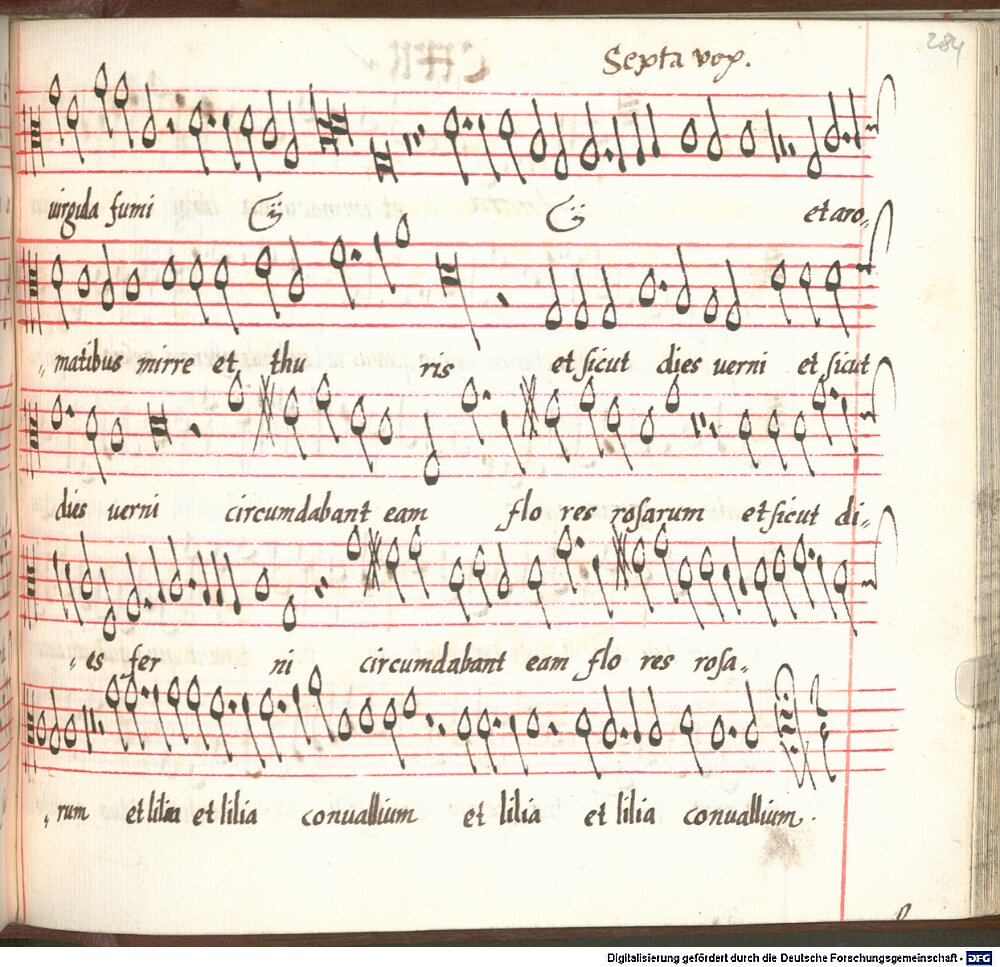 284
Sexta vox.
uirgula fumi et aro„
„matibus mirre et thu ris et sicut dies uerni et sicut
dies uerni circumdabant eam flo res rosarum et sicut di„
„es fer ni circumdabant eam flo res rosa„
„rum et lilia et lilia conuallium et lilia et lilia conuallium.
Digitalisierung gefördert durch die Deutsche Forschungsgemeinschaft - DFG